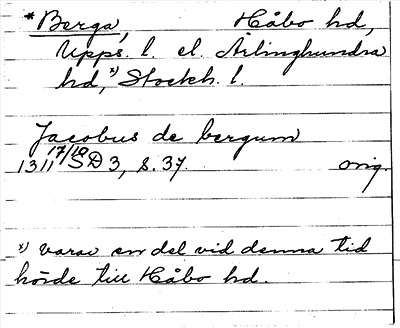 *Berga, Håbo hd,
Upps. l. el. Ärlinghundra
hd,ˣ⁾ Stockh. l.
Jacobus de bergum
1311 17/10 SD 3, s. 37. orig.
x) varav en del vid denna tid
hörde till Håbo hd.